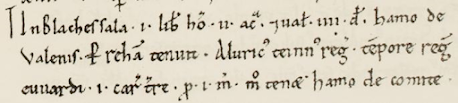 In Blachessala . i . lib hō . ii . ac̄ . 7 ual& . iiii . d̄ . hamo de
Valenis . ten̄ . Aluric̄ teinn̄ reḡ . tēpore reḡ
euuardi . i . car̄ t̄re . p̱ . i . m̄ . m̊ ten& hamo de comite .